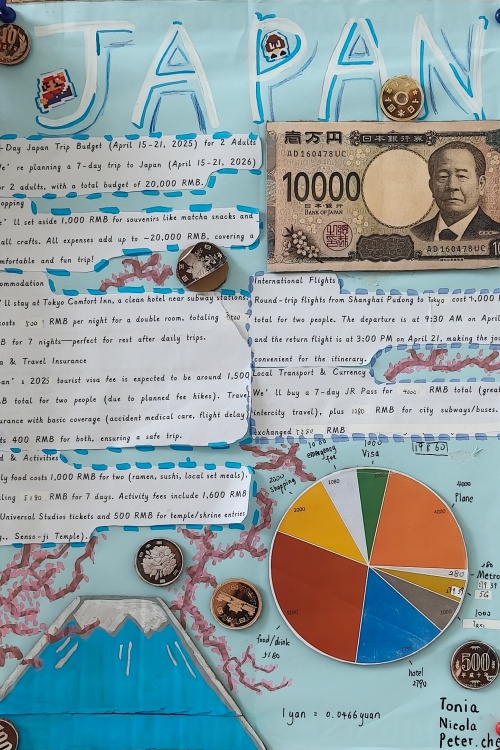 JAPAN
-Day Japan Trip Budget (April 15-21, 2025) for 2 Adults
e're planning a 7-day trip to Japan (April 15-21, 2026)
or 2 adults, with a total budget of 20,000 RMB.
opping
e'll set aside 1,000 RMB for souvenirs like matcha snacks and
all crafts. All expenses add up to ~20,000 RMB, covering a
mfortable and fun trip!
ommodation
'll stay at Tokyo Comfort Inn, a clean hotel near subway stations.
costs RMB per night for a double room, totaling
MB for 7 nights—perfect for rest after daily trips.
a & Travel Insurance
an's 2025 tourist visa fee is expected to be around 1,500
MB total for two people (due to planned fee hikes). Trave
urance with basic coverage (accident medical care, flight delay)
ts 400 RMB for both, ensuring a safe trip.
d & Activities
ly food costs 1,000 RMB for two (ramen, sushi, local set meals),
ling 5180 RMB for 7 days. Activity fees include 1,600 RMB
Universal Studios tickets and 500 RMB for temple/shrine entries
g., Senso-ji Temple).
壹万円
日本銀行券
AD160478UC
10000
日本銀行
BANK OF JAPAN
AD160478UC
International Flights
Round-trip flights from Shanghai Pudong to Tokyo cost 4,000
total for two people. The departure is at 9:30 AM on April
and the return flight is at 3:00 PM on April 21, making the jou
convenient for the itinerary.
Local Transport & Currency
We'll buy a 7-day JR Pass for 4000 RMB total (great
intercity travel), plus 1280 RMB for city subways/buses.
exchanged RMB
19860
1000
Visa
emergency
fee
2000
shopping
4000
Plane
280
Metro
5G
1000
hotel
2790
food/drink
5180
1 yen = 0.0466 yuan
500
Tonia
Nicola
Peter.che